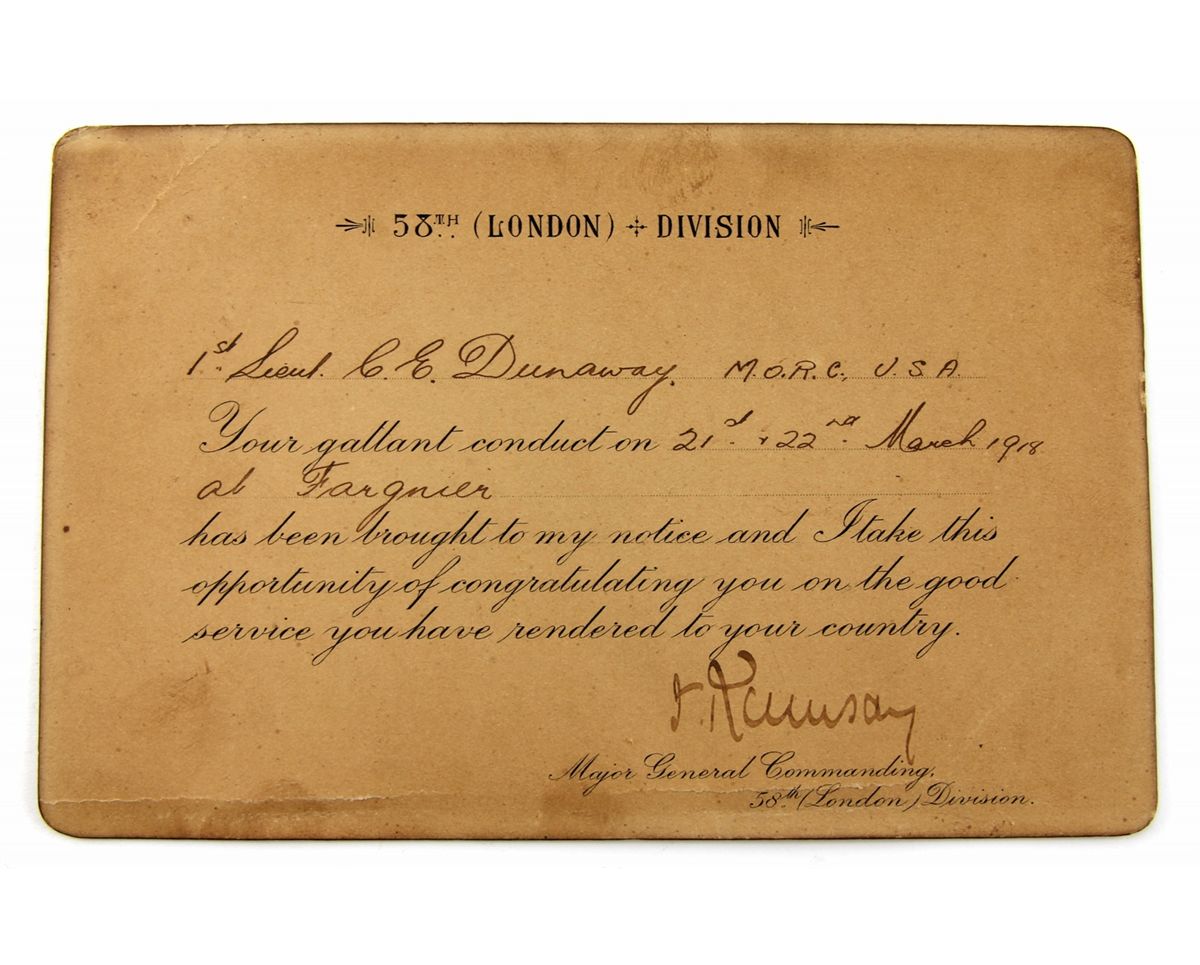 58TH (LONDON) DIVISION
1st Lieut. C. E. Dunaway. M.O.R.C., U.S.A.
Your gallant conduct on 21st. & 22nd. March 1918
at Fargnier
has been brought to my notice and I take this
opportunity of congratulating you on the good
service you have rendered to your country.
F. Ramsay
Major General Commanding,
58th (London) Division.